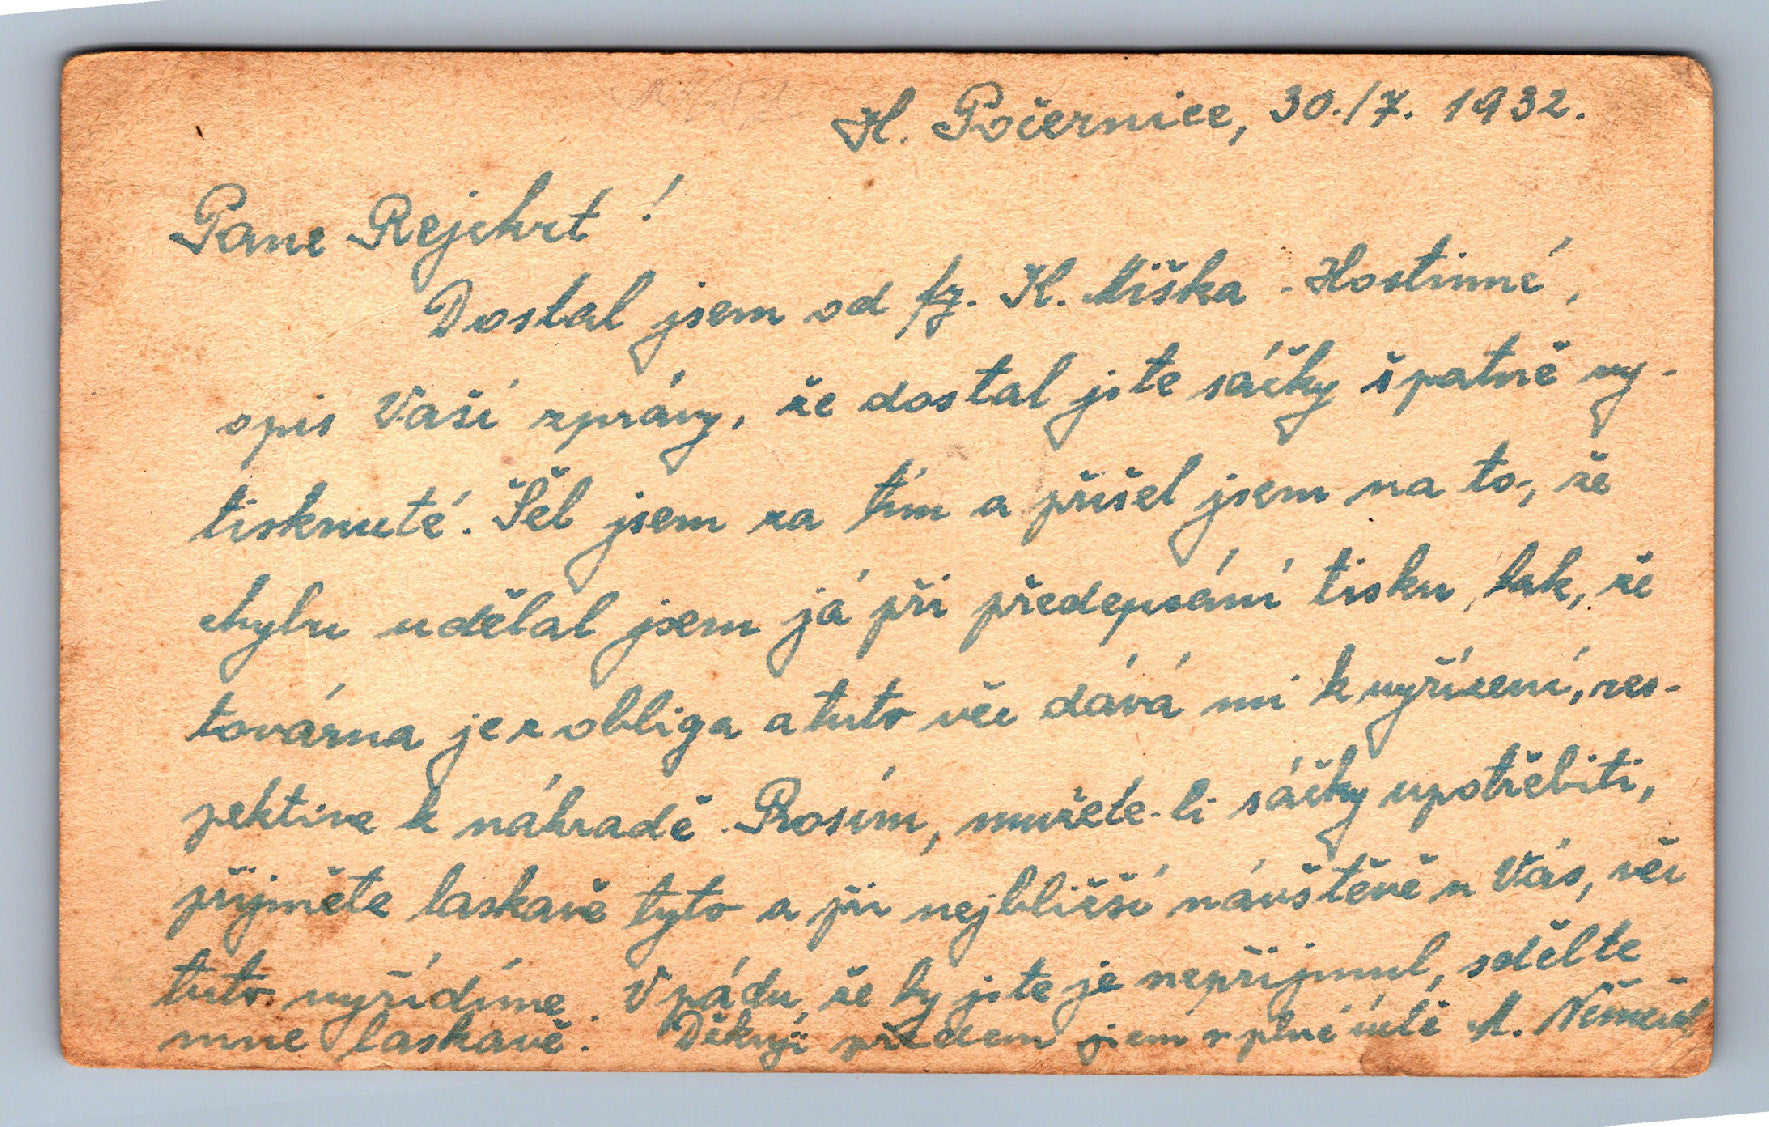 H. Počernice, 30./7. 1932.
Pane Rejchrt!
Dostal jsem od fy. K. Miška - Hostinné,
opis Vaší zprávy, že dostal jste sáčky špatně vy-
tisknuté. Šel jsem za tím a přišel jsem na to, že
chybu udělal jsem já při předepsání tisku, tak, že
továrna je z obliga a tuto věc dává mi k vyřízení, res-
pektive k náhradě. Prosím, mužete-li sáčky upotřebiti,
přijměte laskavě tyto a při nejbližší návštěvě u Vás, věc
tuto vyřídíme. V pádu, že by jste je nepřijmul, sdělte
mne laskavě. Děkuji předem jsem v plné úctě A. Němeček